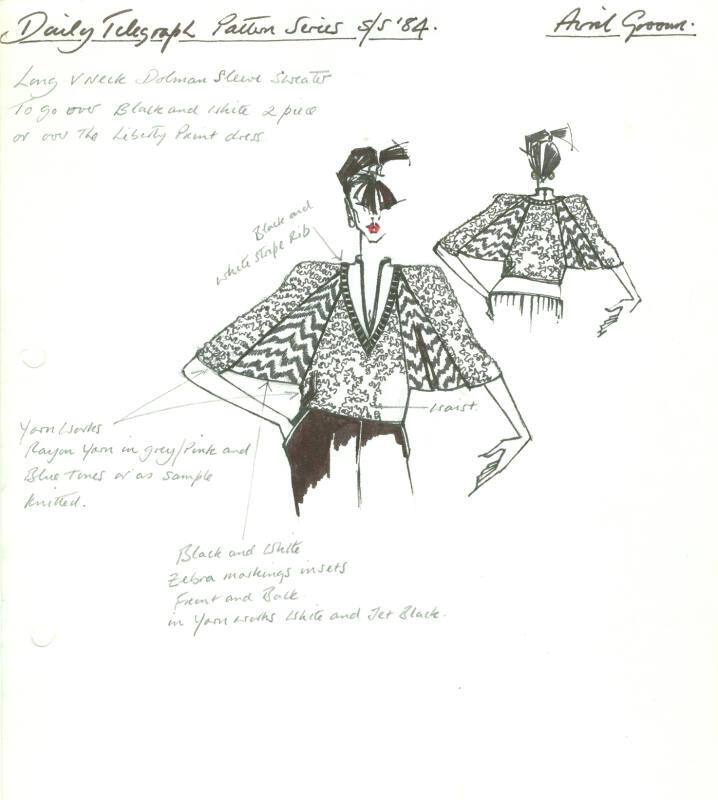 Daily Telegraph Pattern Series S/S '84.
Avril Groom.
Long V Neck Dolman Sleeve Sweater
To go over Black and White 2 piece
or over The Liberty Print dress
Black and
white stripe Rib
waist.
Yarn Works
Rayon Yarn in grey/Pink and
Blue Tones or as sample
Knitted.
Black and White
Zebra markings insets
Front and Back
in Yarn Works White and Jet Black.